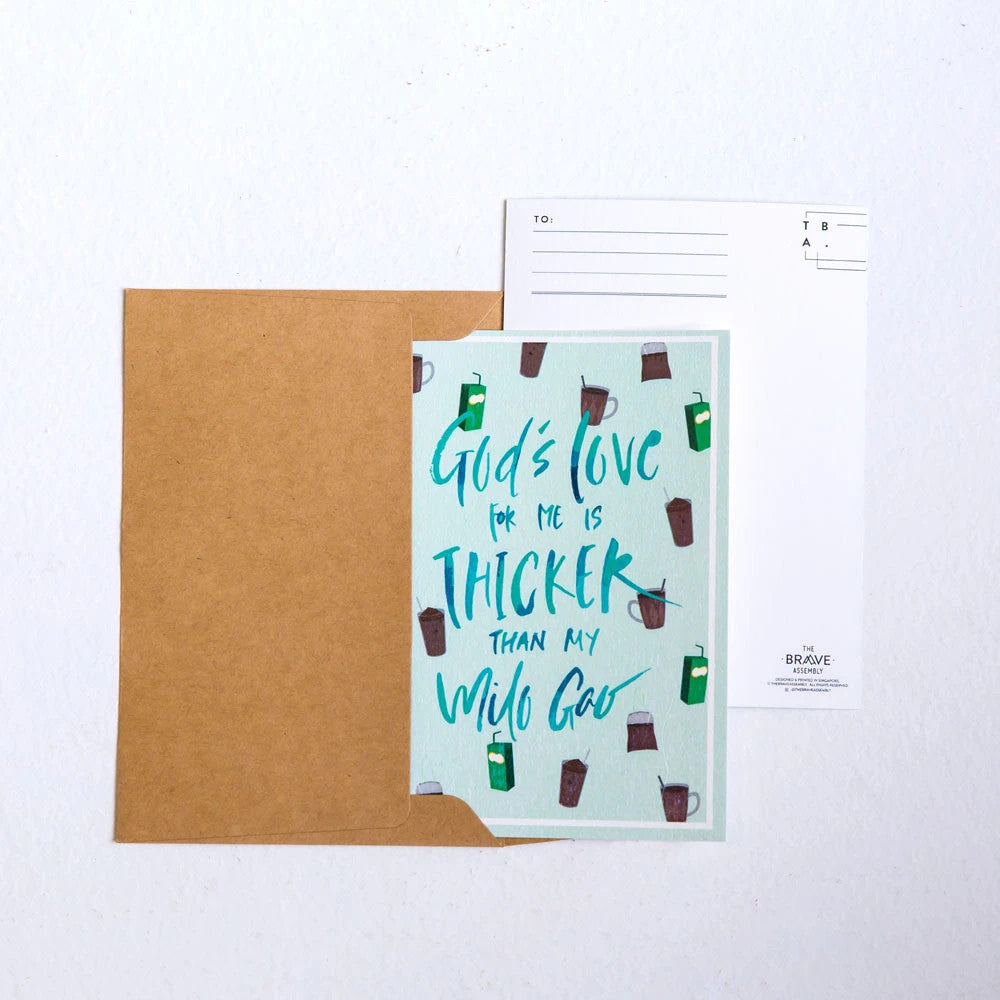 TO:
T B
A .
God's love
FOR ME IS
THICKER
THAN MY
Milo Gao
THE
BRAVE
ASSEMBLY
DESIGNED & PRINTED IN SINGAPORE.
© THEBRAVEASSEMBLY. ALL RIGHTS RESERVED.
@THEBRAVEASSEMBLY